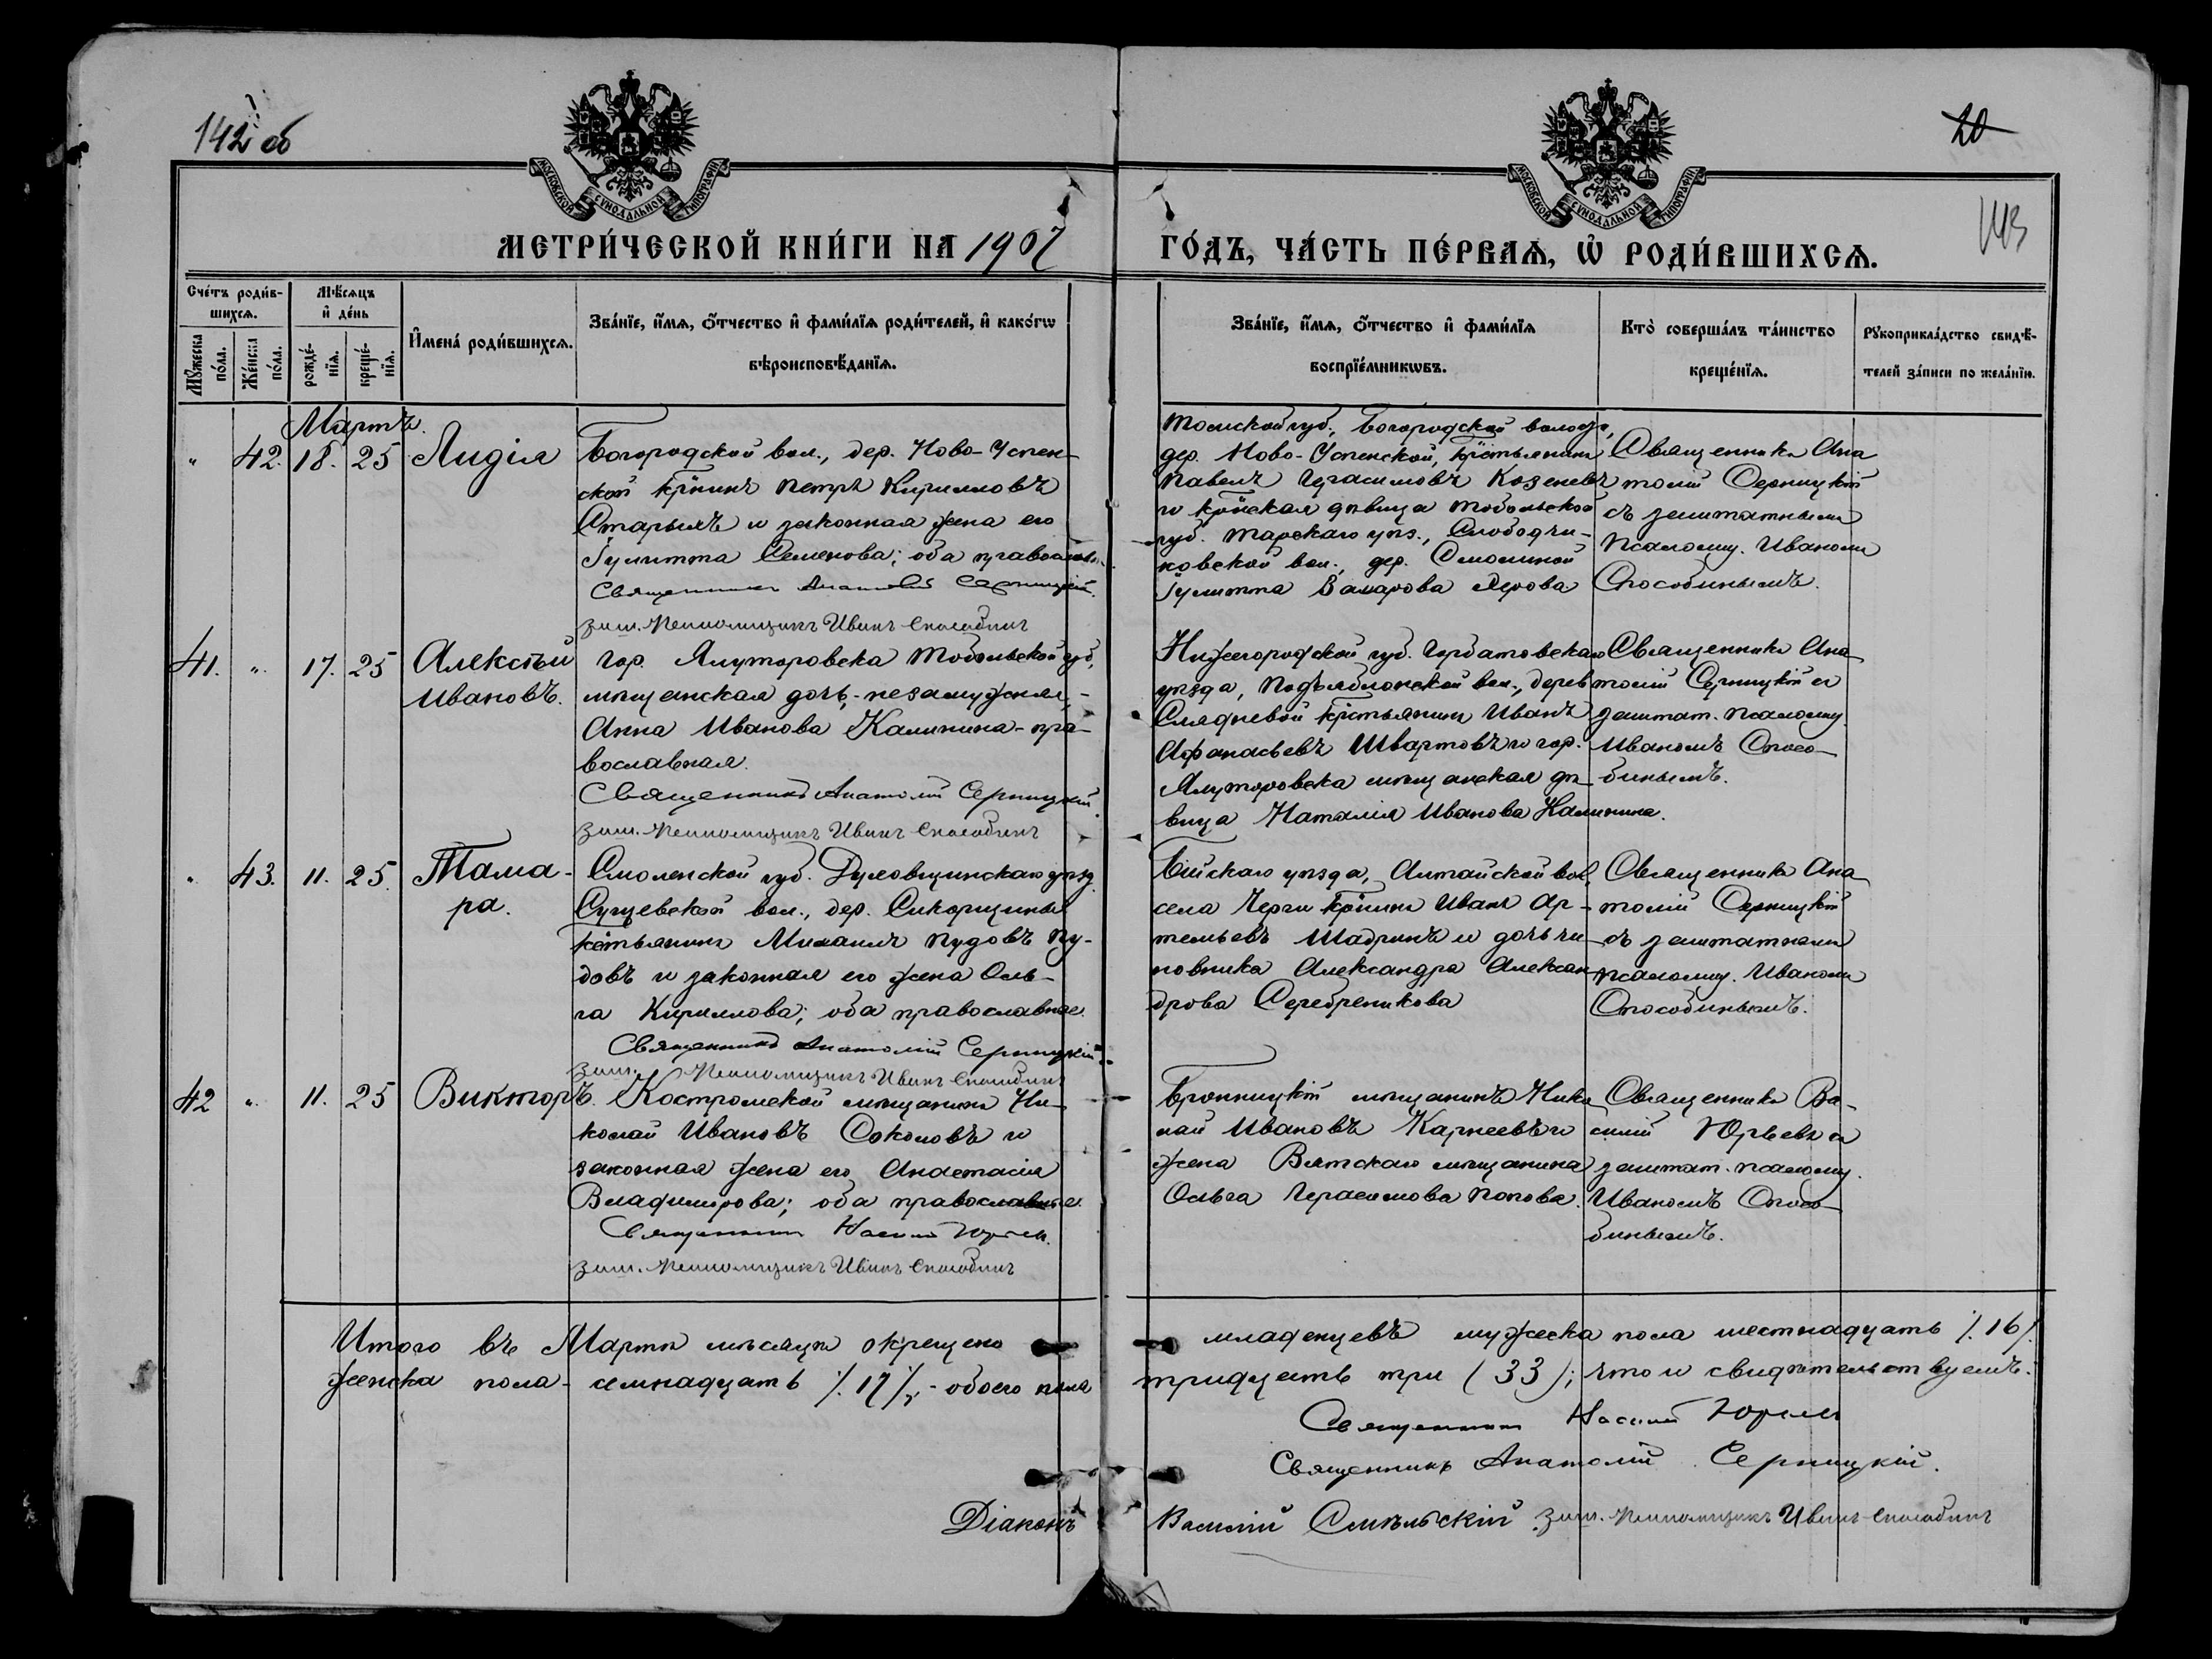 142 об
20
143
МОСКОВСКОЙ СѴНОДАЛЬНОЙ ТИПОГРАФІИ
МОСКОВСКОЙ СѴНОДАЛЬНОЙ ТИПОГРАФІИ
МЕТРИ́ЧЕСКОЙ КНИ́ГИ НА 1907
ГО́ДЪ, ЧА́СТЬ ПЕ́РВАѦ, Ѡ҆ РОДИ́ВШИХСѦ.
Сче́тъ роди́в-
шихсѧ.
Мꙋжеска по́ла.
Же́нска по́ла.
Мѣ́сѧцъ
и҆ де́нь
рожде́-
нїѧ.
креще́-
нїѧ.
И҆мена̀ роди́вшихсѧ.
Зва́нїе, и҆́мѧ, ѻ҆́тчество и҆ фами́лїѧ роди́телей, и҆ како́гѡ
вѣроисповѣ́данїѧ.
Зва́нїе, и҆́мѧ, ѻ҆́тчество и҆ фами́лїѧ
воспрїе́мникѡвъ.
Кто̀ соверша́лъ та́инство
креще́нїѧ.
Рꙋкоприкла́дство свидѣ́-
телей за́писи по жела́нїю.
Мартъ.
" 42. 18. 25 Лидія
Богородской вол., дер. Ново-Успен-
ской кр̃нинъ Петръ Кирилловъ
Старыхъ и законная жена его
Іулитта Семенова; оба православн.
Священникъ Анатолій Серницкій.
заш. Псаломщикъ Иванъ Способинъ
Томской губ., Богородской волости,
дер. Ново-Успенской, крестьянинъ
Павелъ Герасимовъ Козеневъ
и кр̃нская дѣвица Тобольской
губ. Тарскаго уѣз., Слободчи-
ковской вол., дер. Смолиной
Іулитта Захарова Лерова
Священникъ Ана
толій Серницкій
съ заштатнымъ
псаломщ. Иваномъ
Способинымъ.
41. ". 17. 25 Алексѣй
Ивановъ.
гор. Ялуторовска Тобольской губ,
мѣщанская дочь,-незамужняя,-
Анна Иванова Калинина-пра-
вославная.
Священникъ Анатолій Серницкій
заш. Псаломщикъ Иванъ Способинъ
Нижегородской губ. Горбатовскаго
уѣзда, Подъяблонской вол., дерев
Слядневой крестьянинъ Иванъ
Афанасьевъ Швартовъ и гор.
Ялуторовска мѣщанская дѣ-
вица Наталія Иванова Калинина.
Священникъ Ана
толій Серницкій съ
заштат. псаломщ.
Иваномъ Спосо-
бинымъ.
". 43. 11. 25. Тама-
ра.
Смоленской губ. Духовщинскаго уѣзд.
Сущевской вол., дер. Сикорщины
крестьянинъ Михаилъ Пудовъ Пу-
довъ и законная его жена Оль-
га Кириллова; оба православные.
Священникъ Анатолій Серницкій
заш. Псаломщикъ Иванъ Способинъ
Бійскаго уѣзда, Алтайской вол,
села Черги кр̃нинъ Иванъ Ар-
темьевъ Шадринъ и дочь чи-
новника Александра Алексан-
дрова Серебреникова
Священникъ Ана
толій Серницкій
съ заштатнымъ
псаломщ. Иваномъ
Способинымъ.
42 ". 11. 25 Викторъ.
Костромской мѣщанинъ Ни-
колай Ивановъ Соколовъ и
законная жена его Анастасія
Владимірова; оба православные.
Священникъ Василій Юрьевъ.
заш. Псаломщикъ Иванъ Способинъ
Бронницкій мѣщанинъ Нико
лай Ивановъ Карнеевъ и
жена Вятскаго мѣщанина
Ольга Герасимова Попова.
Священникъ Ва-
силій Юрьевъ съ
заштат. псаломщ.
Иваномъ Спосо-
бинымъ.
Итого въ Мартѣ мѣсяцѣ окрещено младенцевъ мужеска пола шестнадцать /.16/.
женска пола- семнадцать /.17/,- обоего пола тридцать три (33); что и свидѣтельствуемъ.
Священникъ Василій Юрьевъ
Священникъ Анатолій Серницкій.
Діаконъ Василій Смѣльскій заш. Псаломщикъ Иванъ Способинъ